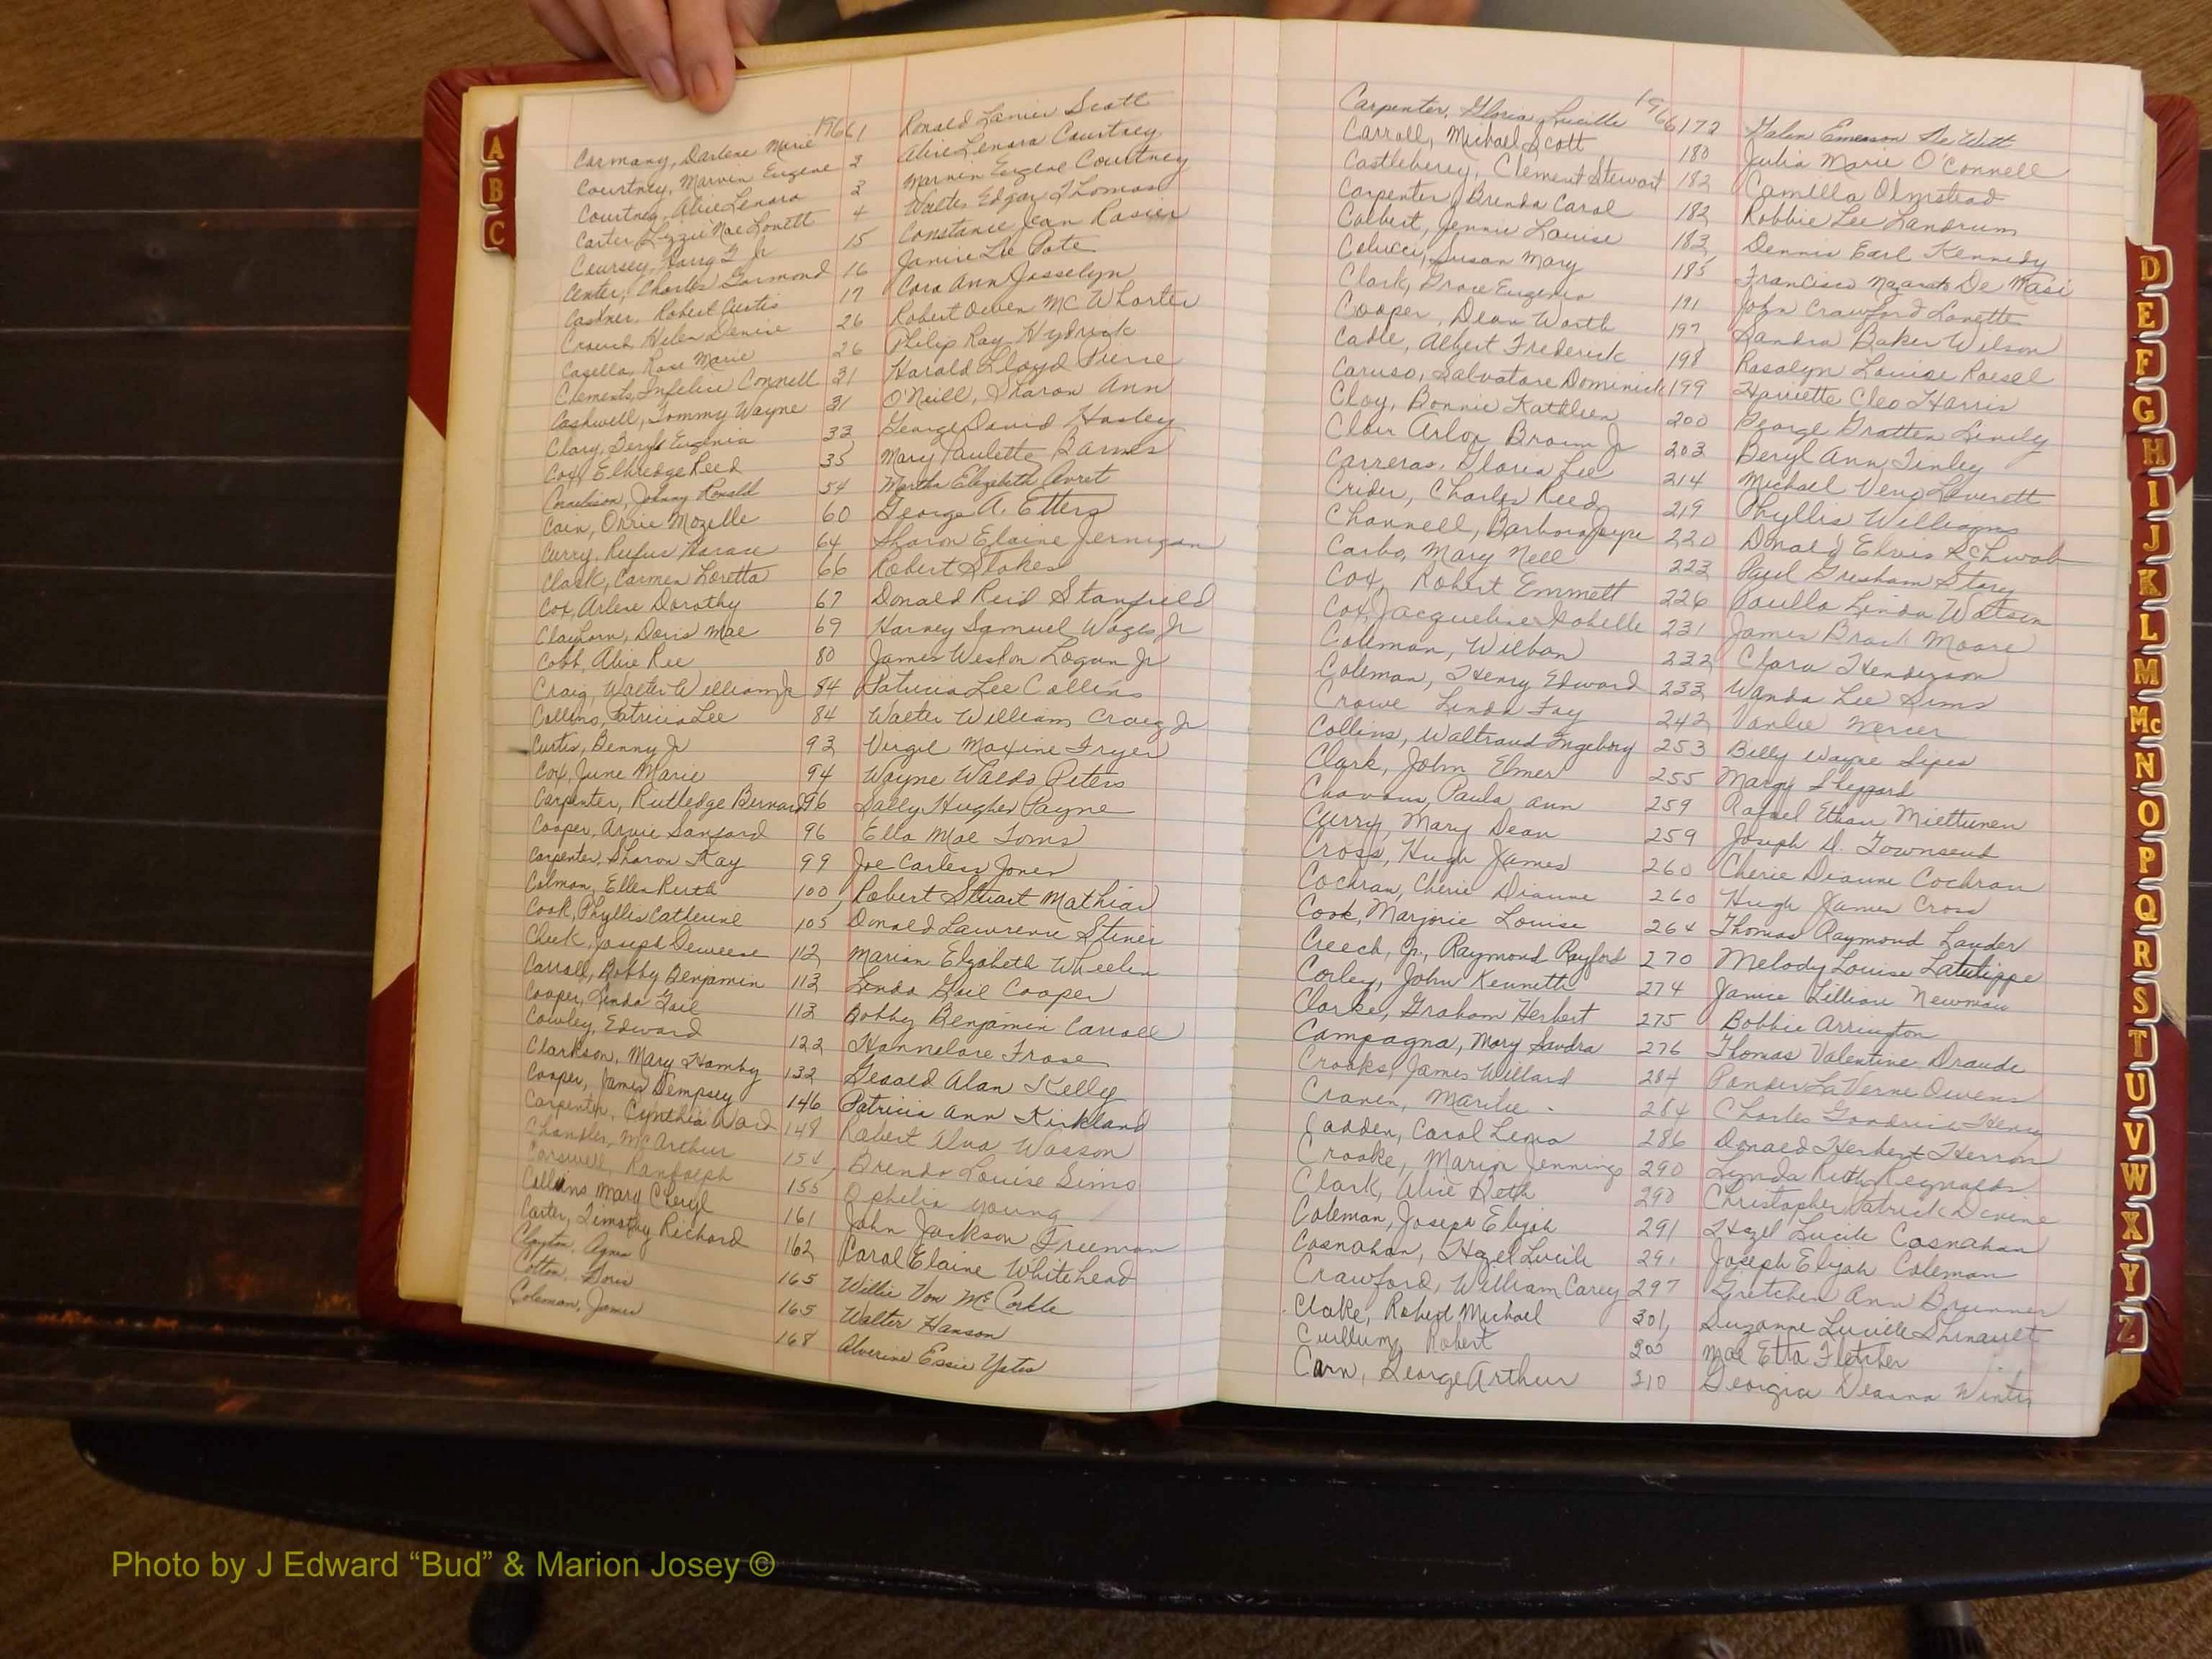 A
B
C
1966
Cormany, Darlene Marie 1 Ronald Lanier Scott
Courtney, Marvin Eugene 2 Alice Lenora Courtney
Courtney, Alice Lenora 2 Marvin Eugene Courtney
Carter, Lizzie Mae Lovett 4 Walter Edgar Thomas
Coursey, Harry G Jr 15 Constance Jean Rasier
Center, Charles 16 Janice Lee Pate
Castner, Robert Curtis 17 Cora Ann Josselyn
Crouch, Helen Denise 26 Robert Owen McWhorter
Casella, Rose Marie 26 Philip Ray Hydrick
Clements, Infelice Connell 31 Harold Lloyd Pierce
Cashwell, Tommy Wayne 31 O'Neill, Sharon Ann
Clary, Beryl Eugenia 33 George David Hasley
Cox, Elhredge Reed 35 Mary Paulette Barnes
Johnny Ronald 54 Martha Elizabeth Avret
Cain, Orrie Mozelle 60 George A. Etters
Curry, Rufus Horace 64 Sharon Elaine Jernigan
Clark, Carmen Loretta 66 Robert Stokes
Cox, Arlene Dorothy 67 Donald Reid Stanfield
Clayhorn, Doris Mae 69 Harvey Samuel Wages Jr
Cobb, Alice Ree 80 James Weston Logan Jr
Craig, Walter William Jr 84 Patricia Lee Collins
Collins, Patricia Lee 84 Walter William Craig Jr
Curtis, Benny Jr 93 Virgil Maxine Fryer
Cox, June Marie 94 Wayne Waldo Peters
Carpenter, Rutledge Bernard 96 Sally Hughes Payne
Cooper, Arvie Sanford 96 Ella Mae Toms
Carpenter, Sharon Kay 99 Joe Carless Jones
Colman, Ellen Ruth 100 Robert Stuart Mathias
Cook, Phyllis Catherine 105 Donald Lawrence Steiner
Cheek, Joseph Deweese 112 Marian Elizabeth Wheeler
Carroll, Bobby Benjamin 113 Linda Gail Cooper
Cooper, Linda Gail 113 Bobby Benjamin Carroll
Cowley, Edward 122 Hannelore Frase
Clarkson, Mary Hamby 132 Gerald Alan Kelly
Cooper, James Dempsey 146 Patricia Ann Kirkland
Carpenter, Cynthia Ward 148 Robert Alva Wasson
Chandler, McArthur 154 Brenda Louise Sims
Carswell, Randolph 155 Ophelia Young
Collins Mary Cheryl 161 John Jackson Freeman
Carter, Timothy Richard 162 Carol Elaine Whitehead
Clayton, Agnes 165 Willie Von McCorkle
Cotton, Doris 165 Walter Hanson
Coleman, James 168 Alverine Essie Yates
1966
Carpenter, Gloria Lucille 172 Galen Emerson DeWitt
Carroll, Michael Scott 180 Julia Marie O'Connell
Castleberry, Clement Stewart 182 Camilla Olmstead
Carpenter, Brenda Carol 182 Robbie Lee Landrum
Colbert, Jennie Louise 183 Dennis Earl Kennedy
Colucci, Susan Mary 185 Francisco De Masi
Clark, Grace Eugenia 191 John Crawford Lanette
Cooper, Dean Worth 197 Sandra Baker Wilson
Cadle, Albert Frederick 198 Rosalyn Louise Roesel
Caruso, Salvatore Dominick 199 Harriette Cleo Harris
Cloy, Bonnie Kathleen 200 George Gratten
Clair Arlon Broun Jr 203 Beryl Ann Tinley
Carreras, Gloria Lee 214 Michael Leverett
Crider, Charles Reed 219 Phyllis Williams
Channell, Barbara Joyce 220 Donald Elvis Schwab
Carbo, Mary Nell 223 Paul Gresham Story
Cox, Robert Emmett 226 Paulla Linda Watson
Cox, Jacqueline Isobelle 231 James Brack Moore
Coleman, Wilbon 232 Clara Henderson
Coleman, Henry Edward 233 Wanda Lee Sims
Crowe Linda Fay 242 Vanlie Mercer
Collins, Waltraud Ingeborg 253 Billy Wayne Sipes
Clark, John Elmer 255 Margy Sheppard
Chavous, Paula Ann 259 Rafael Ethan Miettunen
Curry, Mary Dean 259 Joseph D. Townsend
Cross, Hugh James 260 Cherie Dianne Cochran
Cochran, Cherie Dianne 260 Hugh James Cross
Cook, Marjorie Louise 264 Thomas Raymond Lauder
Creech, Jr, Raymond Rayford 270 Melody Louise Latulippe
Corley, John Kenneth 274 Janice Lillian Newman
Clarke, Graham Herbert 275 Bobbie Arrington
Campagna, Mary Sandra 276 Thomas Valentine Draude
Crooks, James Willard 284 LaVerne Owens
Craven, Marilee 284 Charles Goodrich Henry
Cadden, Carol Lena 286 Donald Herbert Herron
Crooke, Marion Jennings 290 Lynda Ruth Reynolds
Clark, Alice Beth 290 Christopher Patrick Devine
Coleman, Joseph Elijah 291 Hazel Lucile Cosnahan
Cosnahan, Hazel Lucile 291 Joseph Elijah Coleman
Crawford, William Carey 297 Gretchen Ann Brunner
Clarke, Robert Michael 301 Suzanne Lucille Shinault
Cullum, Robert 303 Mae Etta Fletcher
Carn, George Arthur 310 Georgia Deanna Winter
D
E
F
G
H
I
J
K
L
M
Mc
N
O
P
Q
R
S
T
U
V
W
X
Y
Z
Photo by J Edward “Bud” & Marion Josey ©